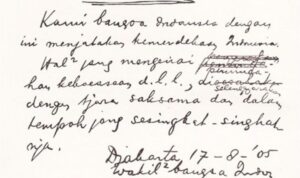 Kami bangsa Indonesia dengan
ini menjatakan kemerdekaan Indonesia.
Hal² jang mengenai
kekoeasaan d.l.l.,
dengan tjara saksama dan dalam
tempoh jang sesingkat-singkat
nja.
Djakarta 17-8-'05
Wakil² bangsa Indon